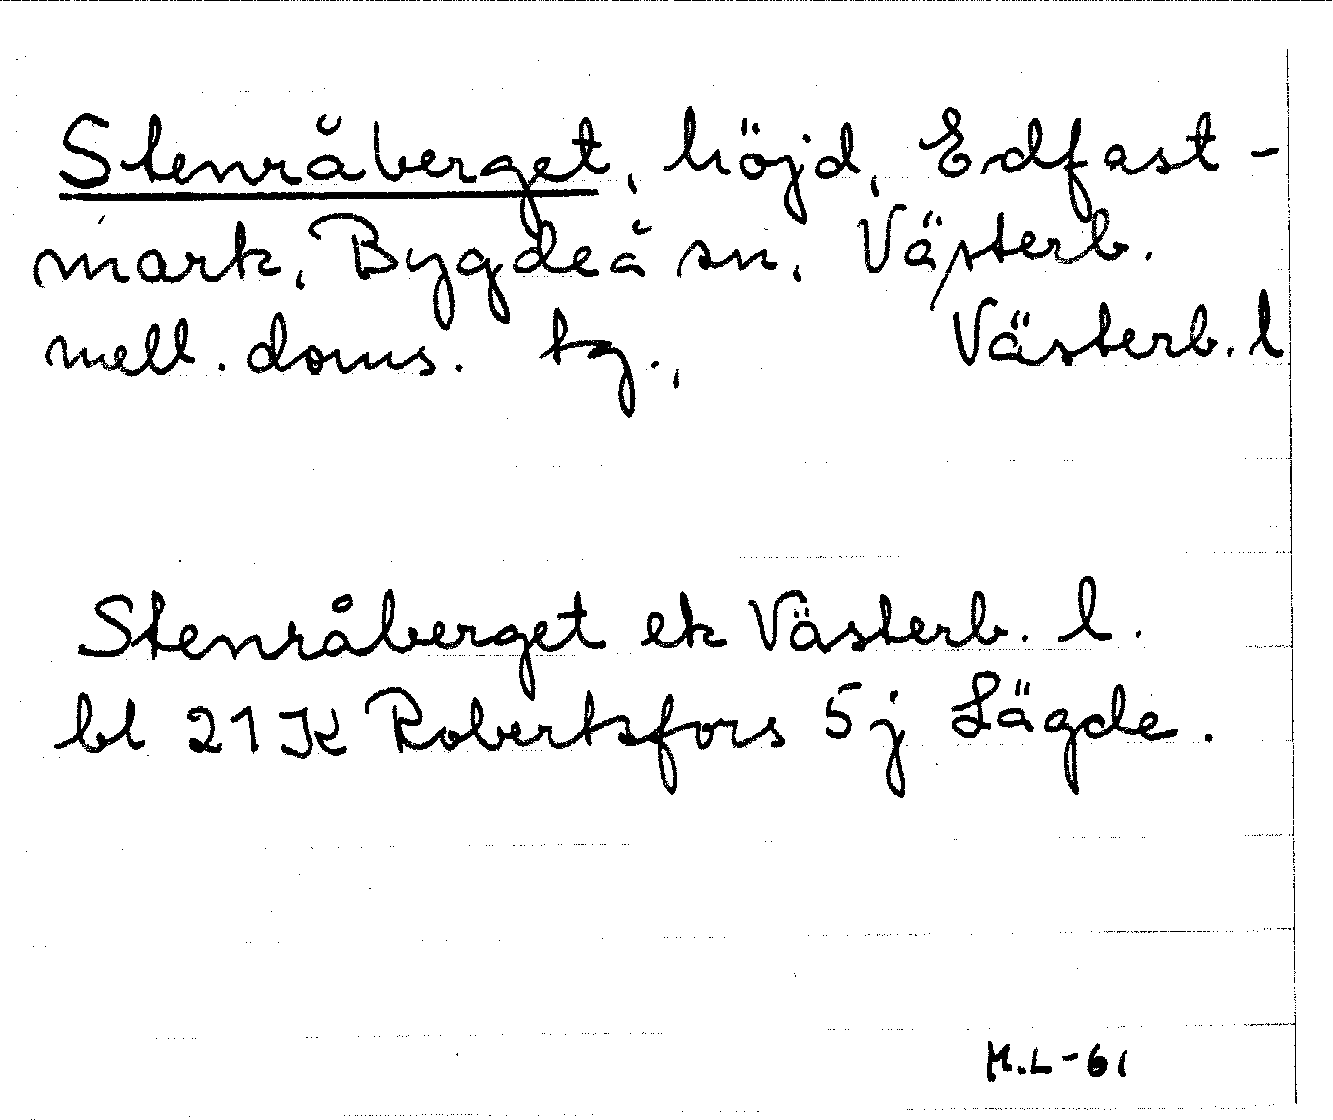 Stenråberget, höjd, Edfast-
mark, Bygdeå sn, Västerb.
mell. doms. tg., Västerb. l
Stenråberget ek Västerb. l.
bl 21K Robertsfors 5j Lägde.
M.L-61